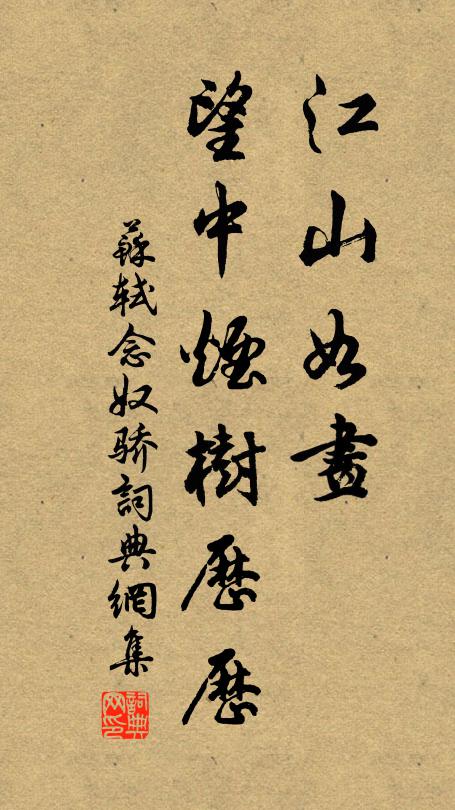 江山如畫
望中煙樹歷歷
蘇軾念奴骄詞典網集
詞典网印